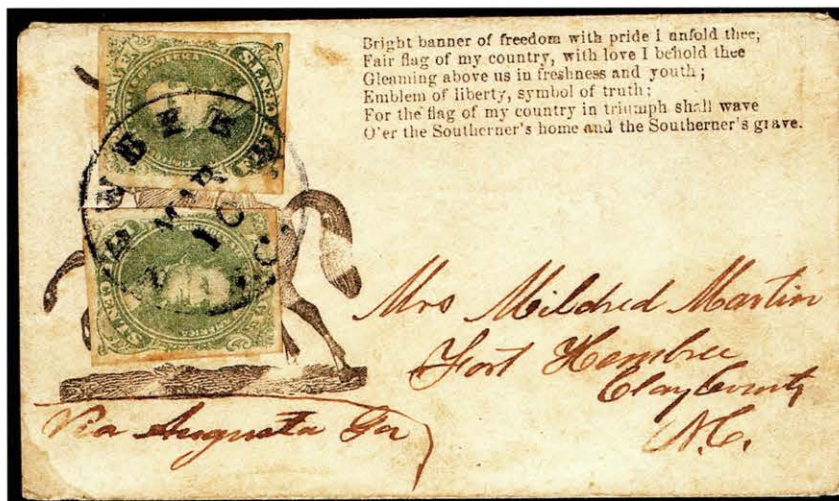 Bright banner of freedom with pride I unfold thee;
Fair flag of my country, with love I behold thee
Gleaming above us in freshness and youth;
Emblem of liberty, symbol of truth;
For the flag of my country in triumph shall wave
O'er the Southerner's home and the Southerner's grave.
MAR
10
AMERICA
Mrs Mildred Martin
Fort Hembree
Clay County
N.C.
Via Augusta Ga